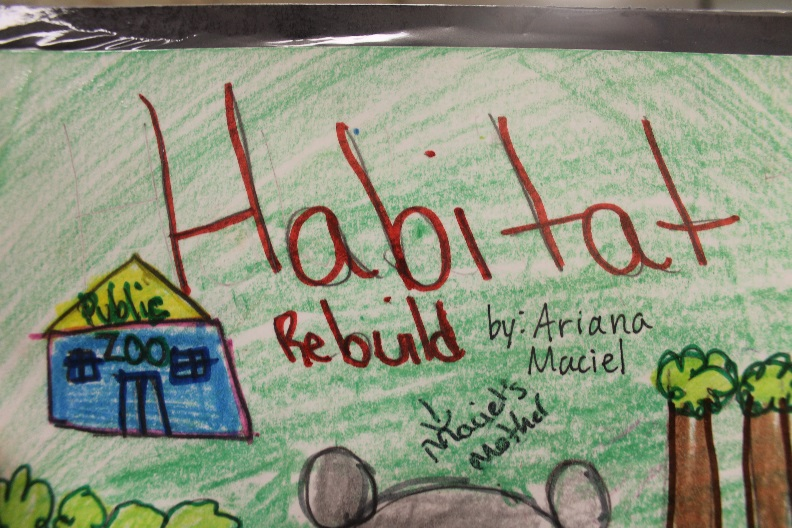 Habitat
Rebuild
by: Ariana
Maciel
Public
ZOO
Maciel's
Mother